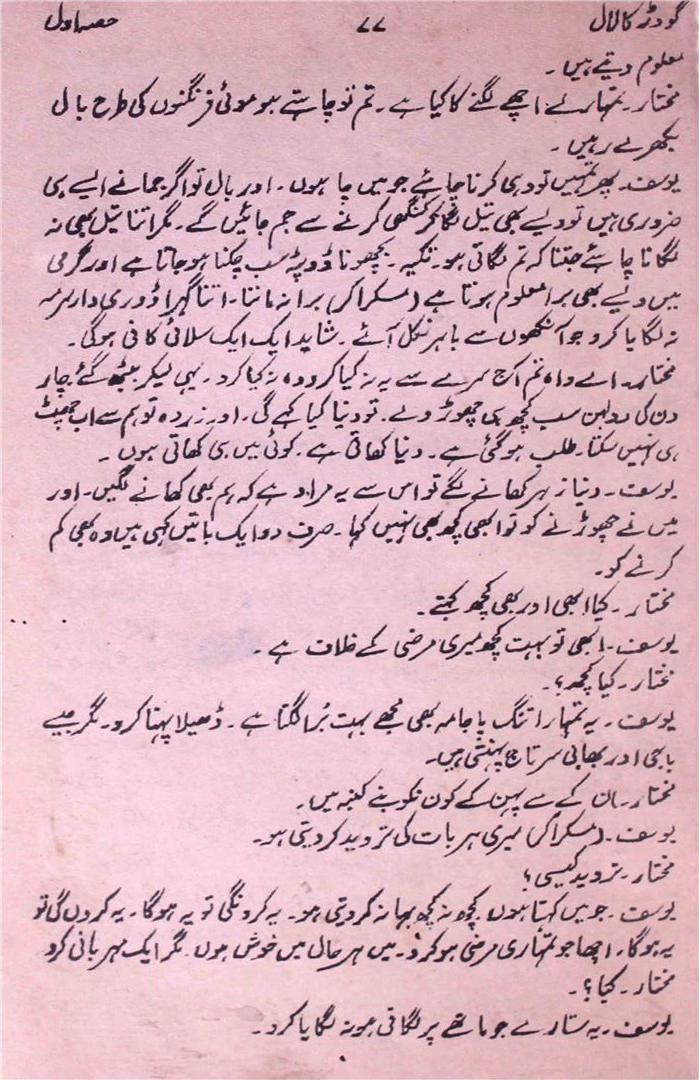 گودڑ کا لال ۷۷ حصہ اول
معلوم دیتے ہیں۔
مختار۔ تمہارے اچھے لگنے کا کیا ہے۔ تم تو چاہتے ہو موئی فرنگنوں کی طرح بال
بکھرے رہیں۔
یوسف۔ پھر تمہیں تو وہی کرنا چاہئے جو میں چاہوں۔ اور بال تو اگر جمانے ایسے ہی
ضروری ہیں تو ویسے بھی تیل لگا کر کنگھی کرنے سے جم جائیں گے۔ مگر اتنا تیل بھی نہ
لگانا چاہئے جتنا کہ تم لگاتی ہو۔ تکیہ۔ بچھونا ڈوپٹہ سب چکنا ہو جاتا ہے اور گرمی
میں ویسے بھی برا معلوم ہوتا ہے (مسکرا کر) برا نہ ماننا۔ اتنا گہرا ڈوری دار سرمہ
نہ لگایا کرو جو آنکھوں سے باہر نکل آئے۔ شاید ایک ایک سلائی کافی ہوگی۔
مختار۔ اے واہ تم آج سرے سے یہ نہ کیا کرو وہ نہ کیا کرو۔ یہی لیکر بیٹھ گئے چار
دن کی دولہن سب کچھ ہی چھوڑ دے۔ تو دنیا کیا کہے گی۔ اور زردہ تو ہم سے اب چھٹ
ہی نہیں سکتا۔ طلب ہو گئی ہے۔ دنیا کھاتی ہے۔ کوئی میں ہی کھاتی ہوں۔
یوسف۔ دنیا زہر کھانے لگے تو اس سے یہ مراد ہے کہ ہم بھی کھانے لگیں۔ اور
میں نے چھوڑنے کو تو ابھی کچھ بھی نہیں کہا۔ صرف دو ایک باتیں کہی ہیں وہ بھی کم
کرنے کو۔
مختار۔ کیا ابھی اور بھی کچھ کہتے۔
یوسف۔ ابھی تو بہت کچھ میری مرضی کے خلاف ہے۔
مختار۔ کیا کچھ؟۔
یوسف۔ یہ تمہارا تنگ پاجامہ بھی مجھے بہت بُرا لگتا ہے۔ ڈھیلا پہنا کرو۔ مگر جیسے
باجی اور بھابی سرتاج پہنتی ہیں۔
مختار۔ ان کے سے پہن کے کون نکو بنے کنبہ میں۔
یوسف۔ (مسکرا کر) میری ہر بات کی تردید کر دیتی ہو۔
مختار۔ تردید کیسی؟
یوسف۔ جو میں کہتا ہوں کچھ نہ کچھ بہانہ کر دیتی ہو۔ یہ کرونگی تو یہ ہوگا۔ یہ کروں گی تو
یہ ہوگا۔ اچھا جو تمہاری مرضی ہو کرو۔ میں ہر حال میں خوش ہوں۔ مگر ایک مہربانی کرو
مختار۔ کیا؟۔
یوسف۔ یہ ستارے جو ماتھے پر لگاتی ہو نہ لگایا کرو۔